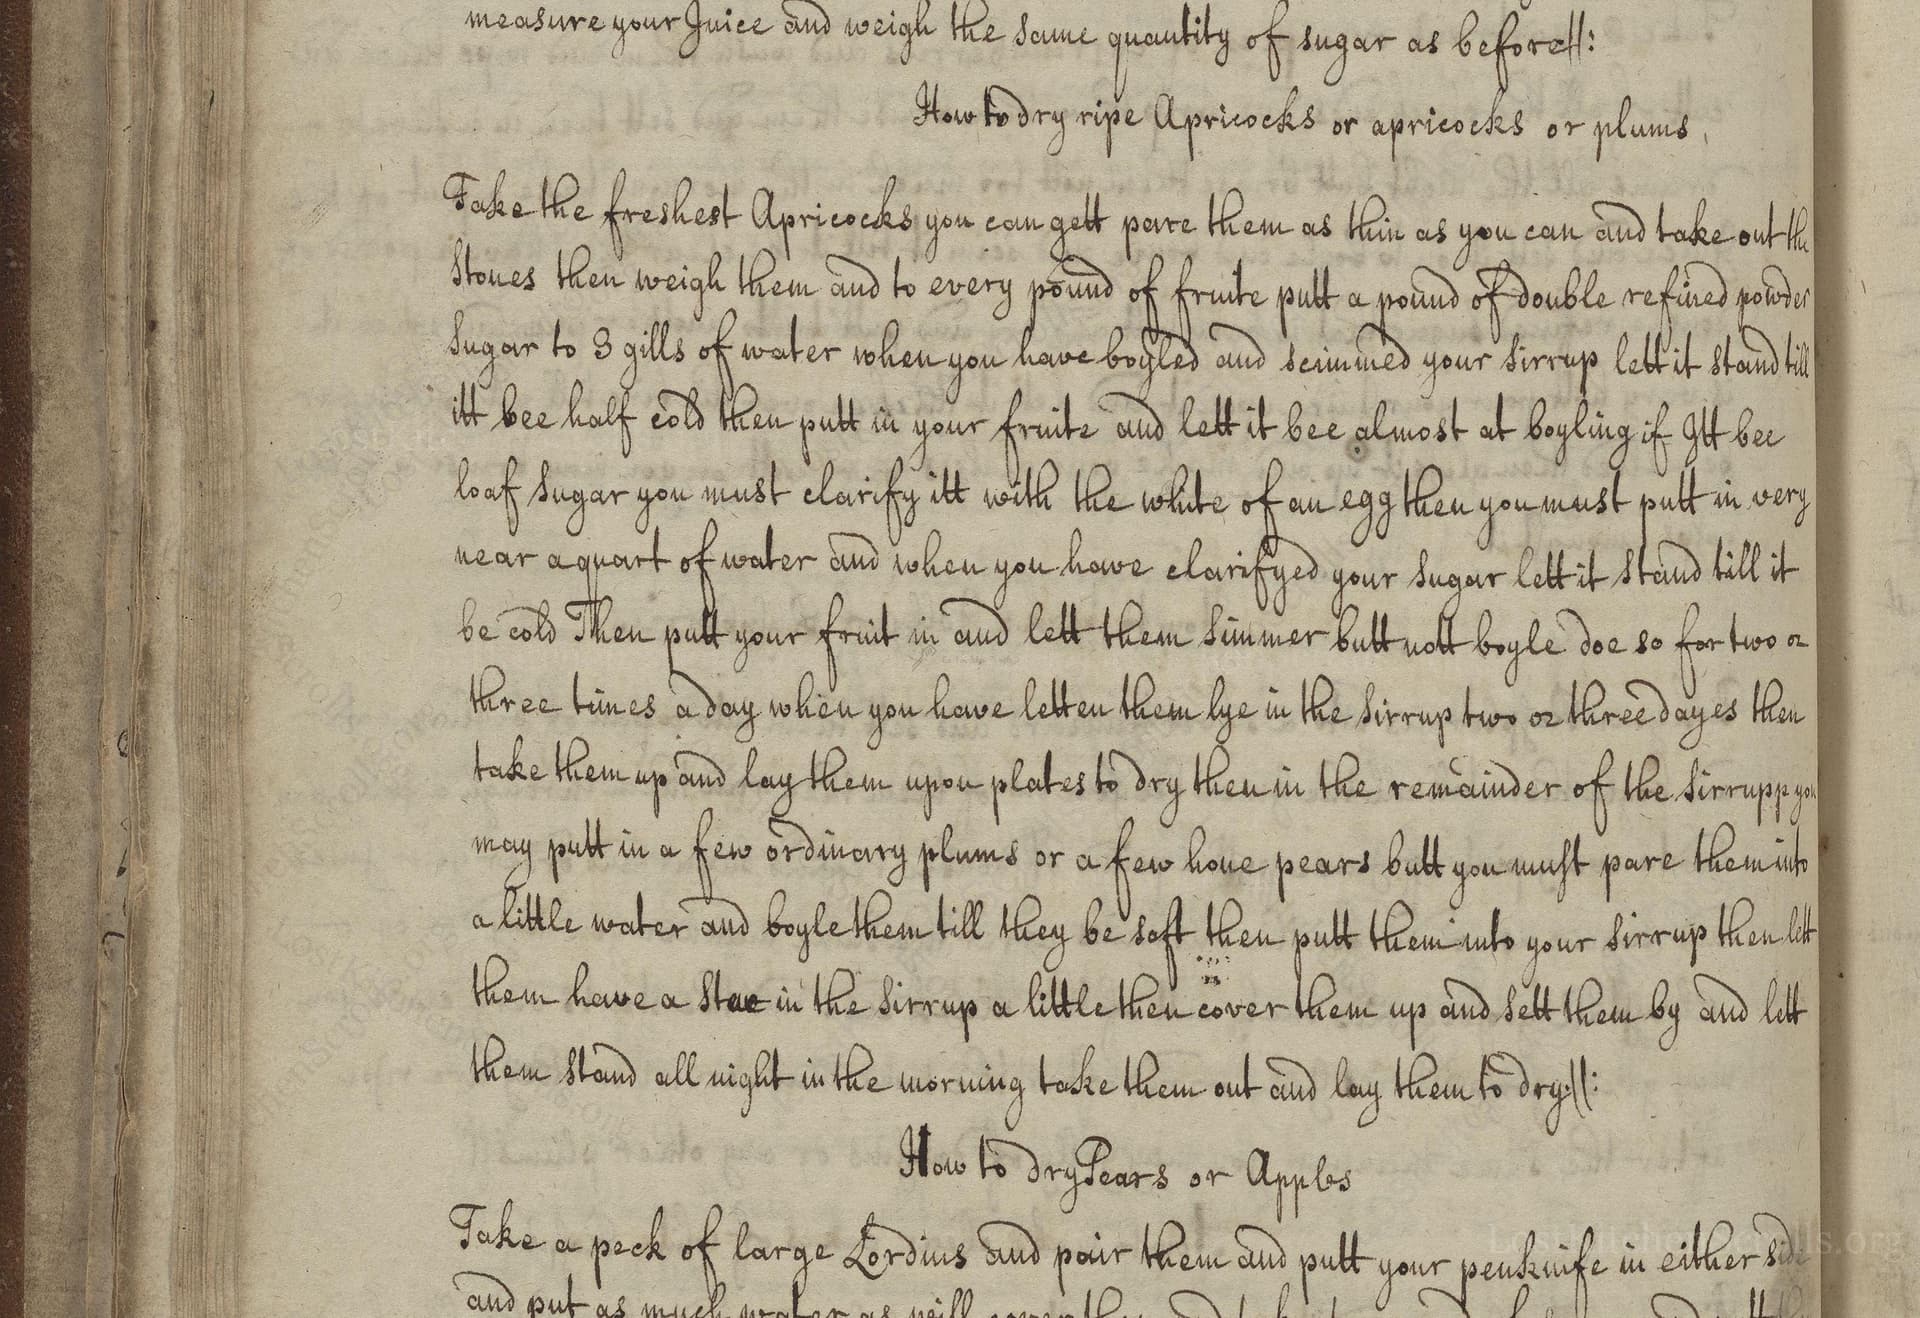 measure your Juice and weigh the same quantity of sugar as before//:
How to dry ripe Apricocks or apricocks or plums
Take the freshest Apricocks you can gett pare them as thin as you can and take out the
stones then weigh them and to every pound of fruite putt a pound of double refined powder
sugar to 3 gills of water when you have boyled and scimmed your sirrup lett it stand till
itt bee half cold then putt in your fruite and lett it bee almost at boyling if Itt bee
loaf sugar you must clarify itt with the white of an egg then you must putt in very
near a quart of water and when you have clarifyed your sugar lett it stand till it
be cold Then putt your fruit in and lett them simmer butt nott boyle doe so for two or
three times a day when you have letten them lye in the sirrup two or three dayes then
take them up and lay them upon plates to dry then in the remainder of the sirrupp you
may putt in a few ordinary plums or a few hone pears butt you must pare them into
a little water and boyle them till they be soft then putt them into your sirrup then lett
them have a stue in the sirrup a little then cover them up and sett them by and lett
them stand all night in the morning take them out and lay them to dry://:
How to dry Pears or Apples
Take a peck of large Lordius and pair them and putt your penknife in either side
and put as much water as will cover them